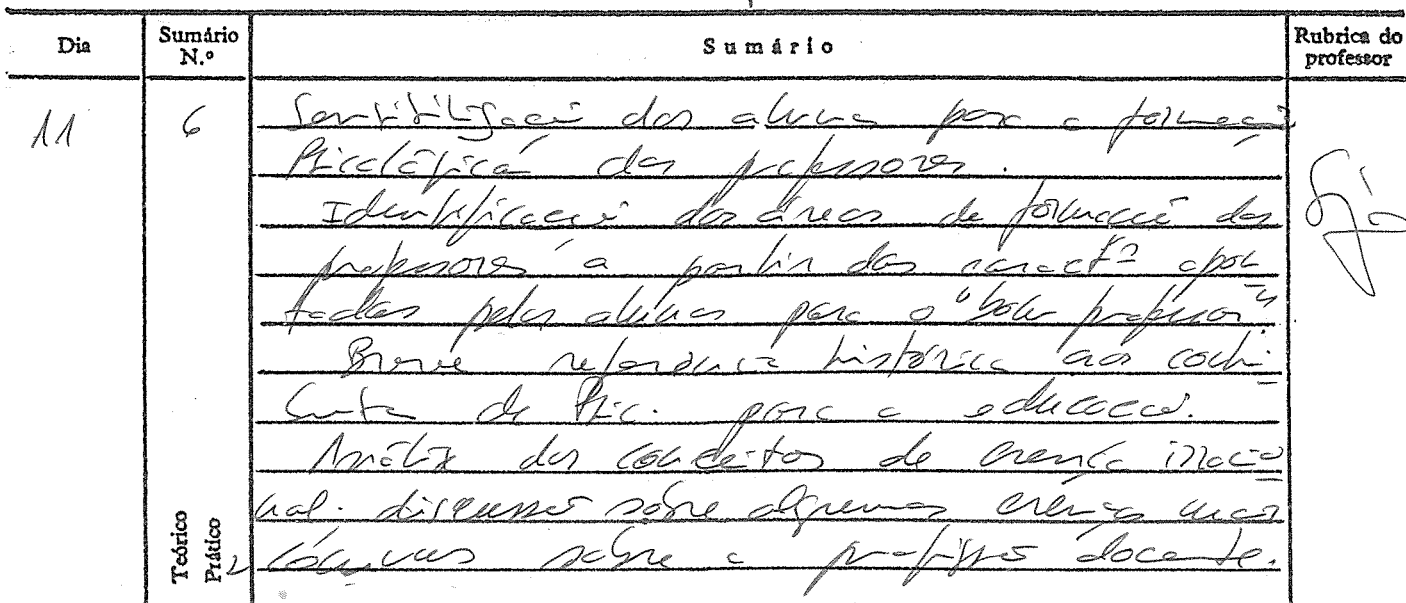 Dia
Sumário N.º
Sumário
Rubrica do professor
11
6
Sensibilização dos alunos para a formação
Psicológica dos professores.
Identificação das áreas de formação dos
professores a partir das caract apon
tadas pelos alunos para o "bom professor"
Breve referência histórica aos
da Psic. para a educação.
Análise dos conceitos de crença irracio
nal. discussão sobre algumas crenças mais
comuns sobre a profissão docente.
Teórico
Prático
2